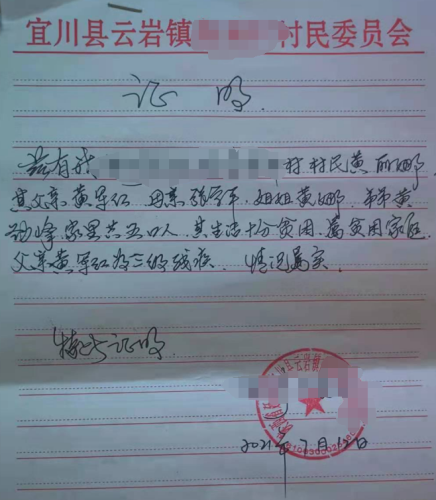 宜川县云岩镇 村民委员会
证 明
兹有我 村村民黄丽娜
其父亲黄军红 母亲张 姐姐黄娜 弟弟黄
峰 家里共五口人 其生活十分贫困 属贫困家庭
父亲黄军红为三级残疾 情况属实
特此证明
宜川县云岩镇
2021年7月12日